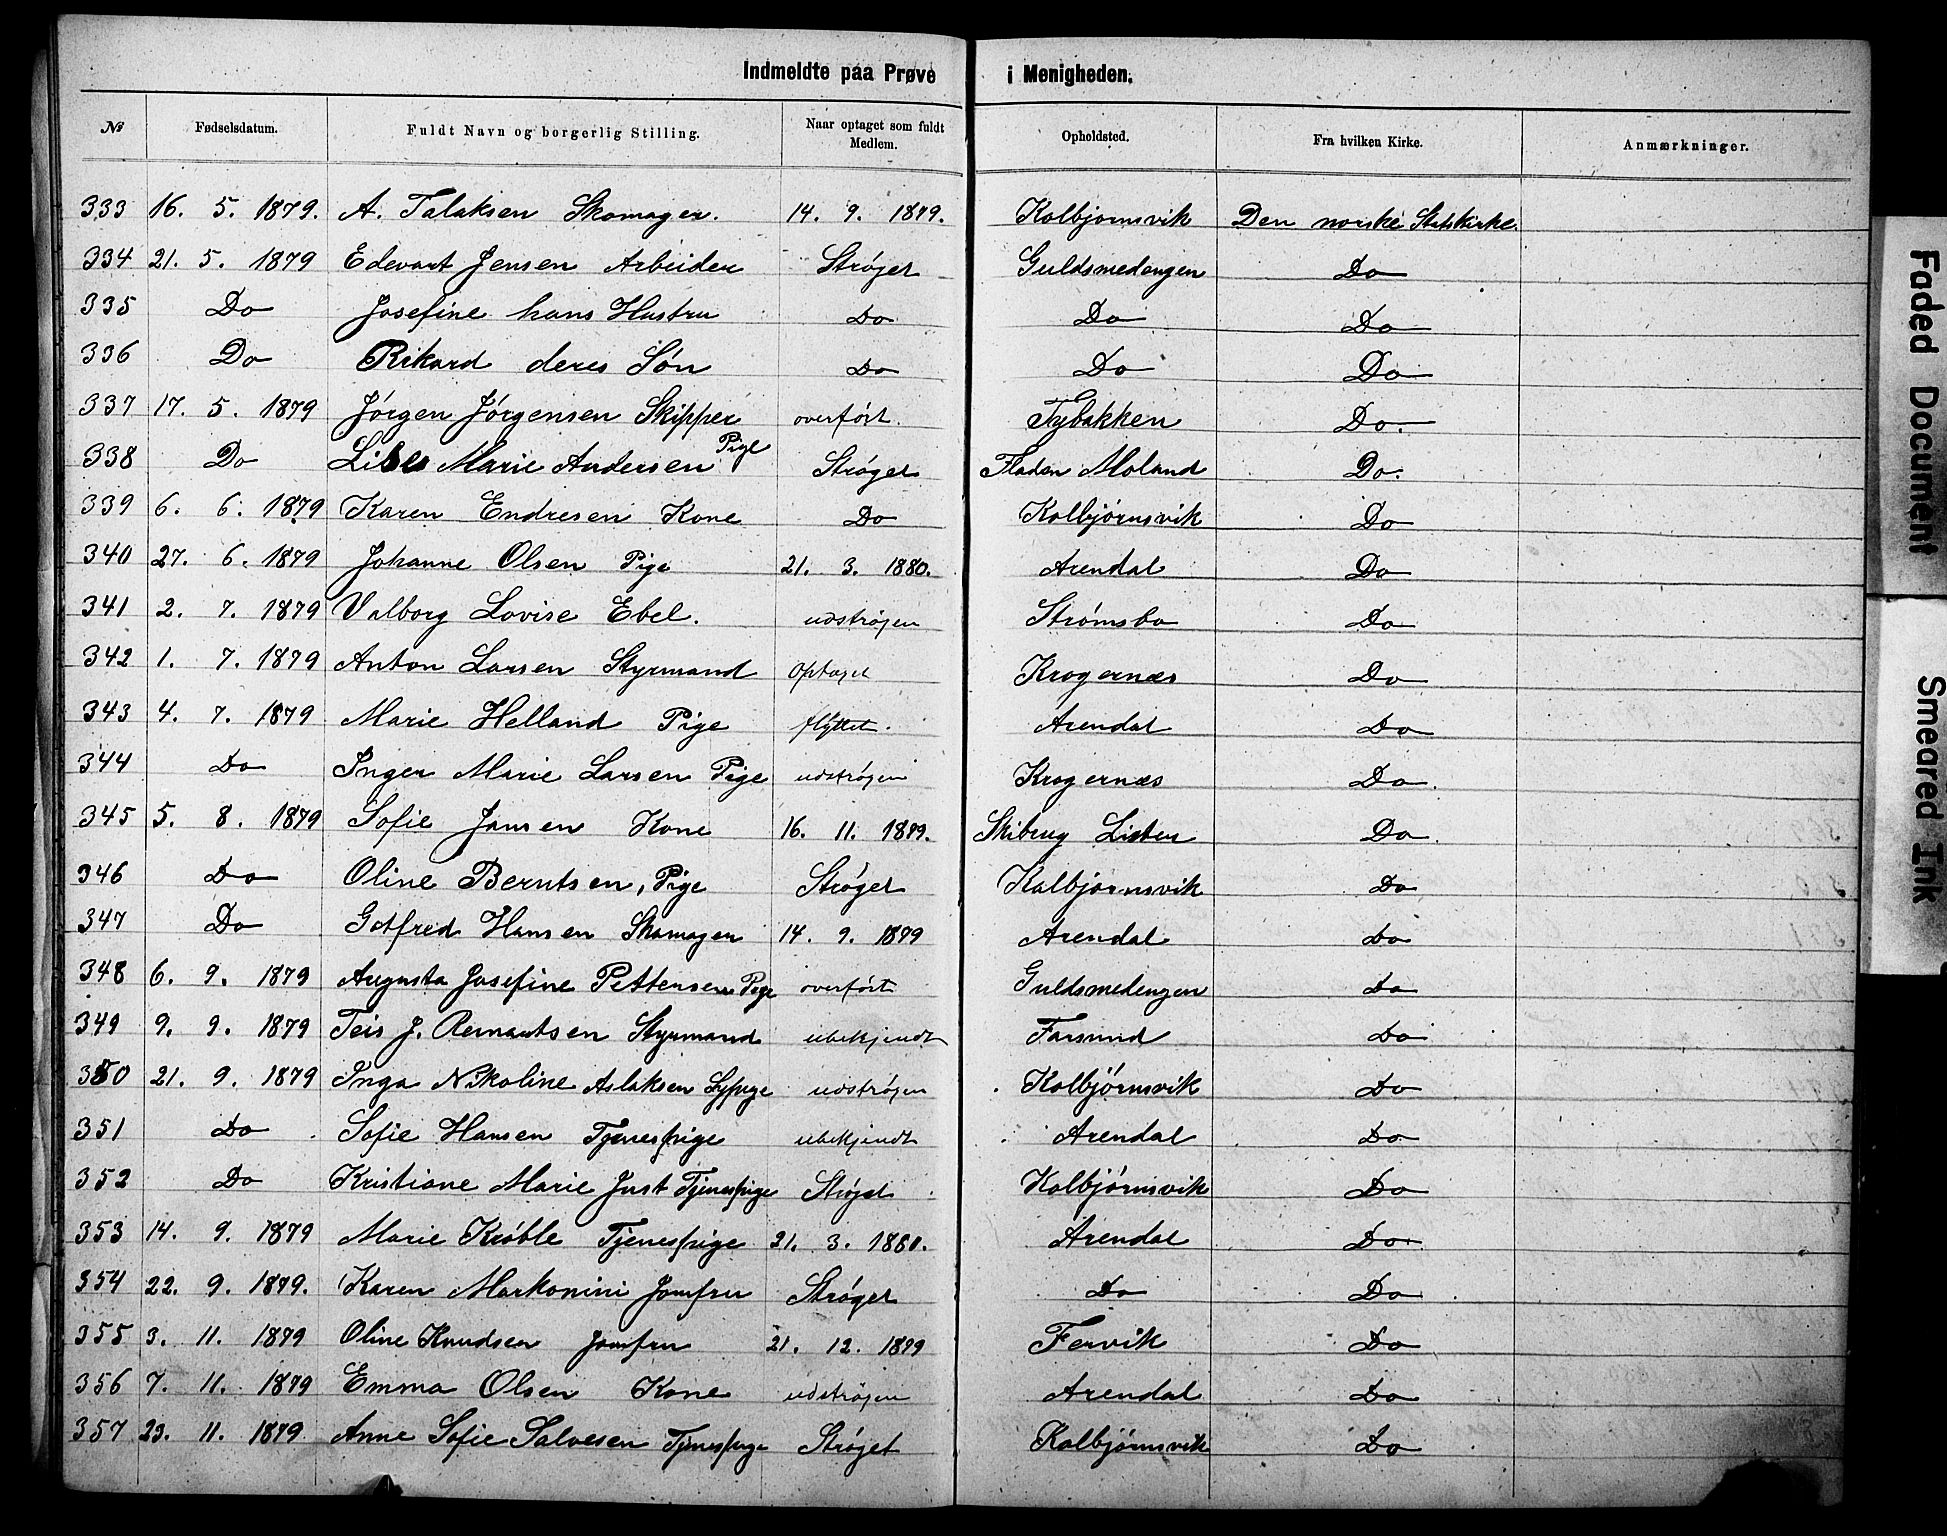 Indmeldte paa Prøve i Menigheden.
№ Fødselsdatum. Fuldt Navn og borgerlig Stilling. Naar optaget som fuldt Medlem. Opholdsted. Fra hvilken Kirke. Anmærkninger.
333 16. 5. 1879. A. Talaksen Skomager. 14. 9. 1879. Kolbjornsvik Den norske Statskirke.
334 21. 5. 1879 Edevart Jensen Arbeider Strøget Guldsmedengen Do
335 Do Josefine hans Hustru Do Do Do
336 Do Rikard deres Søn Do Do Do
337 17. 5. 1879 Jørgen Jørgensen Skipper overført. Tybakken Do.
338 Do Marie Andersen Pige Strøget Fladen Moland Do.
339 6. 6. 1879 Karen Endresen Kone Do Kolbjørnsvik Do
340 27. 6. 1879 Johanne Olsen Pige 21. 3. 1880. Arendal Do
341 2. 7. 1879 Valborg Lovise Ebel. udstrøgen Strømsbo Do
342 1. 7. 1879 Anton Larsen Styrmand optaget Krogernæs Do
343 4. 7. 1879 Marie Helland Pige flyttet. Arendal Do
344 Do Inger Marie Larsen Pige udstrøgen Krogernæs Do.
345 5. 8. 1879 Sofie Jansen Kone 16. 11. 1879. Lister Do.
346 Do Oline Berntsen, Pige Strøget Kolbjørnsvik Do
347 Do Gotfred Hansen Skomager 14. 9. 1879 Arendal Do
348 6. 9. 1879 Augusta Josefine Pettersen Pige overført Guldsmedengen Do
349 9. 9. 1879 Teis J. Styrmand ubekjendt Farsund Do
350 21. 9. 1879 Inga Nikoline Aslaksen udstrøgen Kolbjørnsvik Do
351 Do Sofie Hansen Tjenespige ubekjendt Arendal Do
352 Do Kristiane Marie Just Tjenespige Strøget Kolbjørnsvik Do
353 14. 9. 1879 Marie Krøble Tjenespige 21. 3. 1880. Arendal Do
354 22. 9. 1879. Karen Markonini Jomfru Strøget Do Do
355 3. 11. 1879 Oline Knudsen Jomfru 21. 12. 1879 Fervik Do
356 7. 11. 1879 Emma Olsen Kone udstrøgen Arendal Do
357 23. 11. 1879 Anne Sofie Salvesen Tjenespige Strøget Kolbjørnsvik Do
Faded Document
Smeared Ink